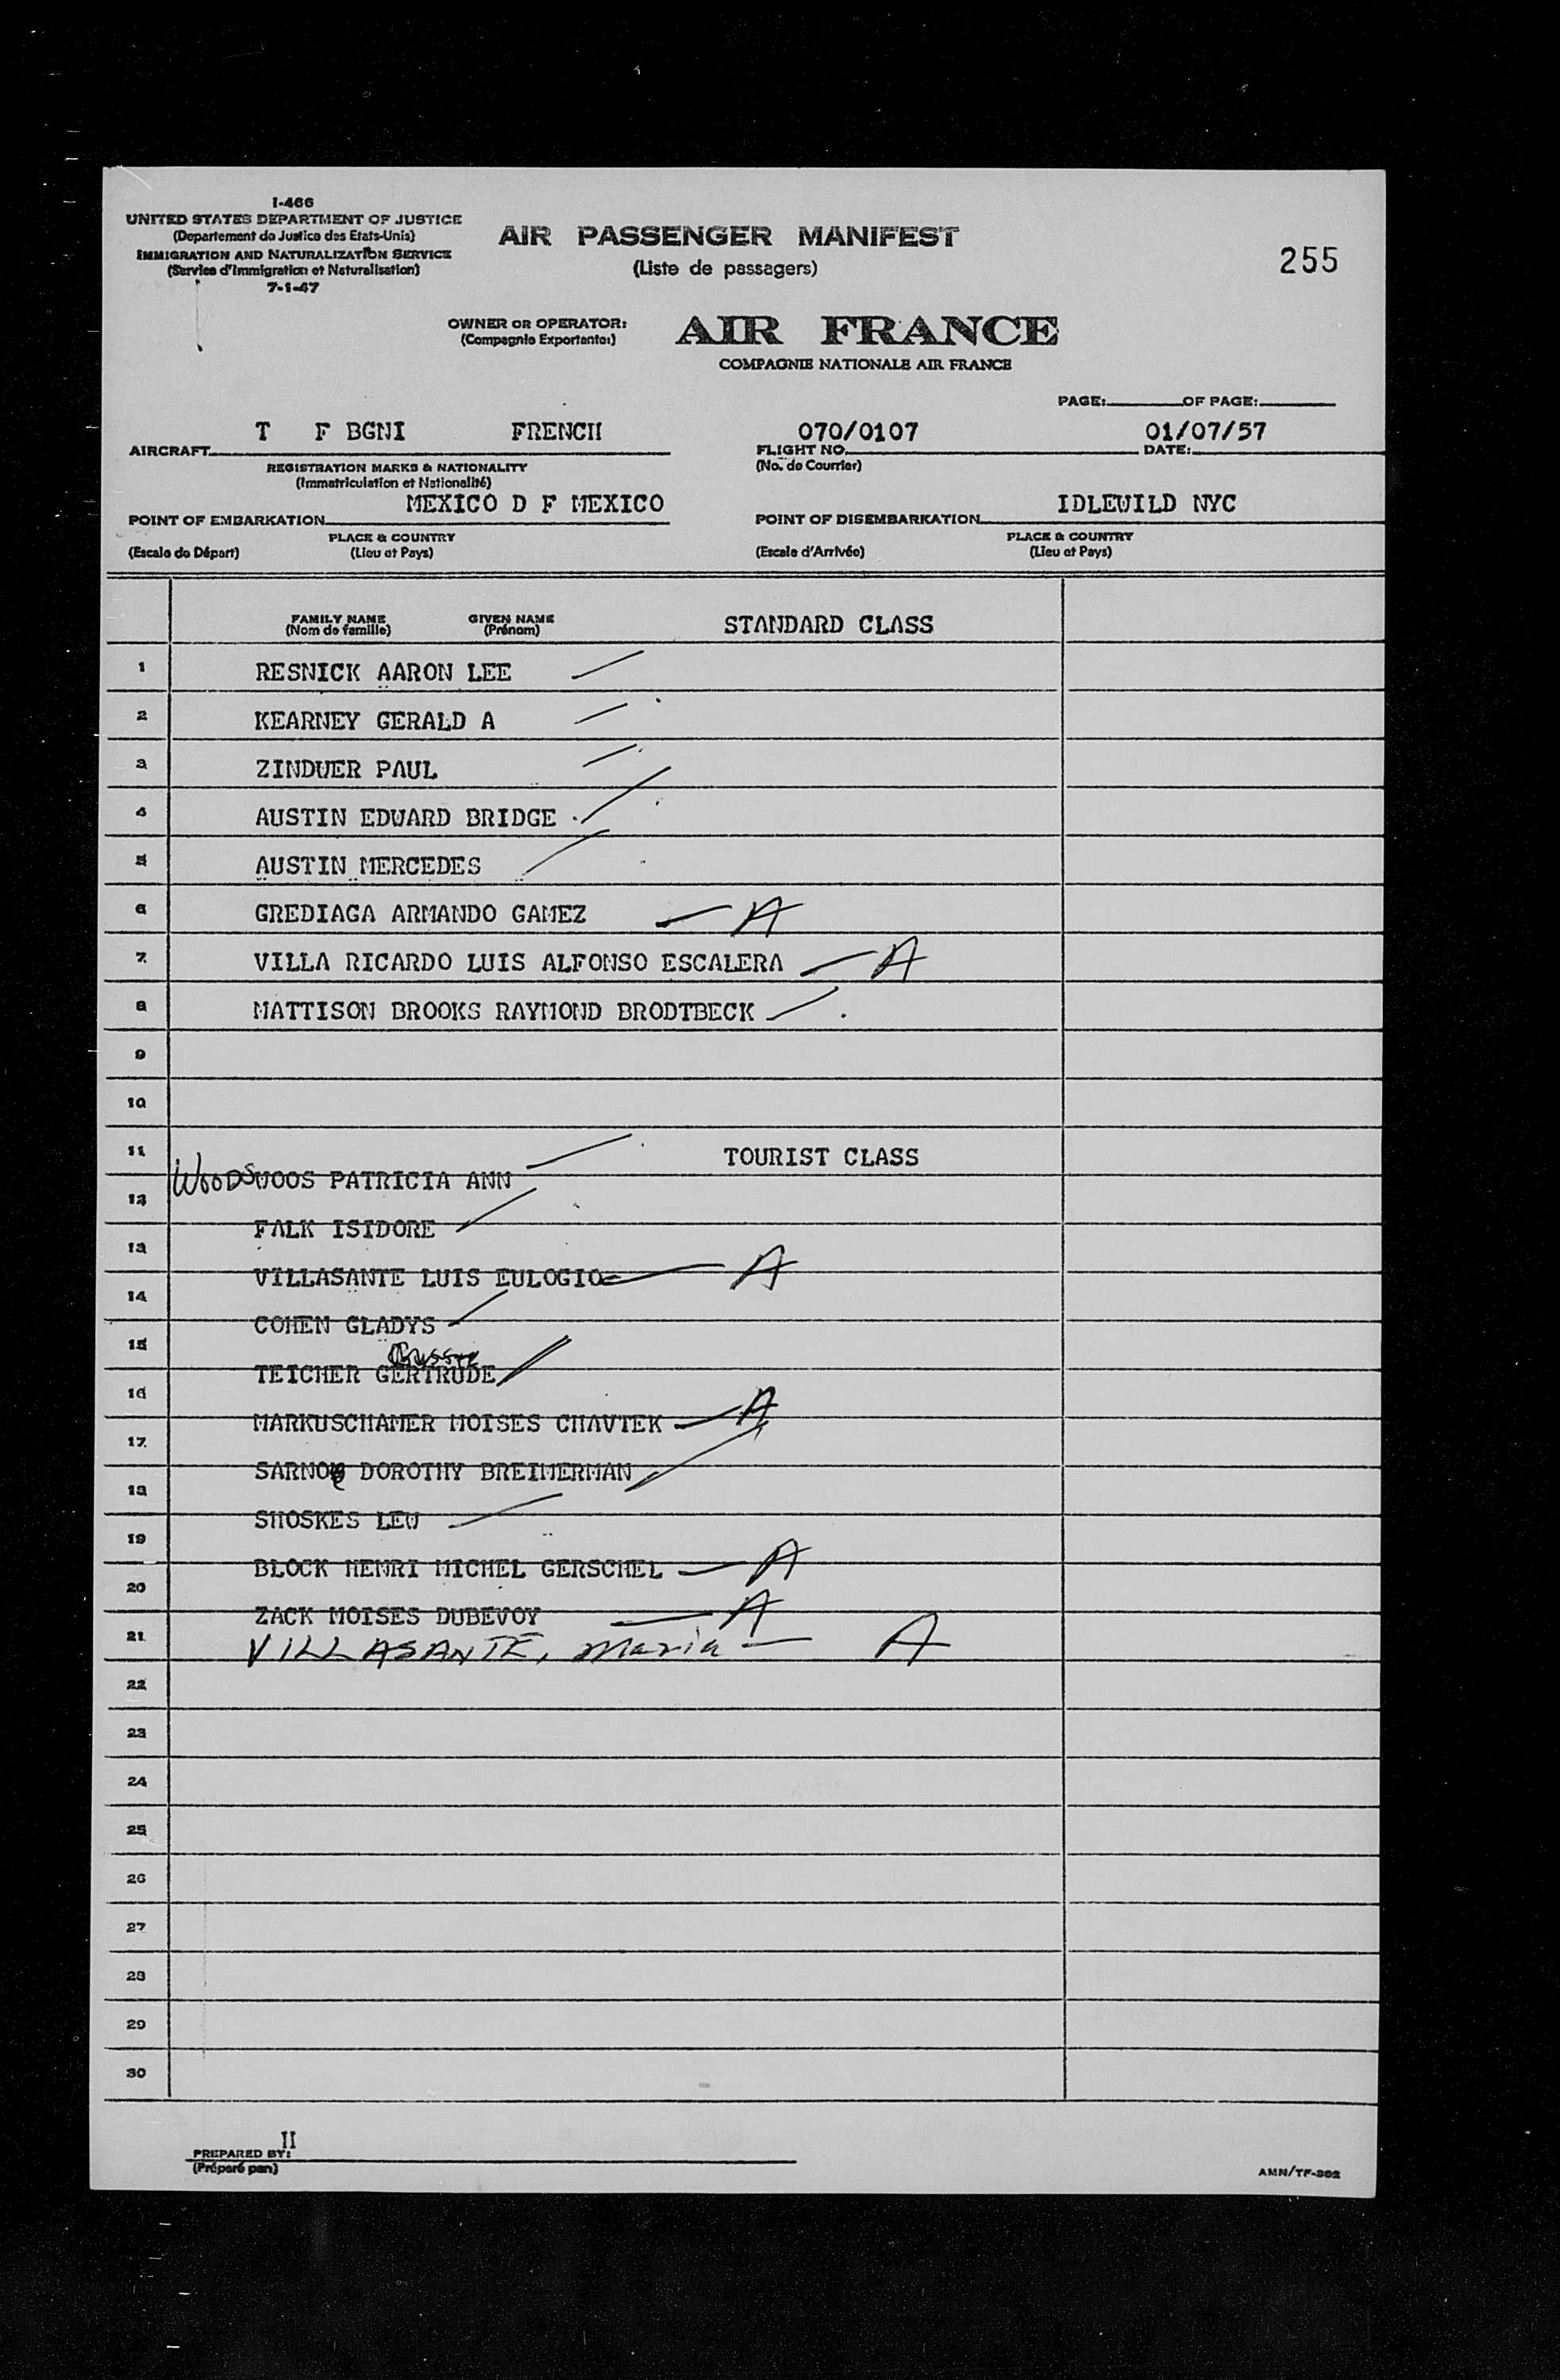 I-466
UNITED STATES DEPARTMENT OF JUSTICE
(Departement de Justice des Etats-Unis)
IMMIGRATION AND NATURALIZATION SERVICE
(Service d'Immigration et Naturalisation)
7-1-47
AIR PASSENGER MANIFEST
(Liste de passagers)
255
OWNER OR OPERATOR:
(Compagnie Exportante:)
AIR FRANCE
COMPAGNIE NATIONALE AIR FRANCE
PAGE: OF PAGE:
AIRCRAFT T F BGNI FRENCH
REGISTRATION MARKS & NATIONALITY
(Immatriculation et Nationalité)
FLIGHT NO. 070/0107 DATE: 01/07/57
(No. de Courrier)
POINT OF EMBARKATION MEXICO D F MEXICO
PLACE & COUNTRY
(Escale de Départ) (Lieu et Pays)
POINT OF DISEMBARKATION IDLEWILD NYC
PLACE & COUNTRY
(Escale d'Arrivée) (Lieu et Pays)
FAMILY NAME GIVEN NAME STANDARD CLASS
(Nom de famille) (Prénom)
1 RESNICK AARON LEE
2 KEARNEY GERALD A
3 ZINDWER PAUL
4 AUSTIN EDWARD BRIDGE
5 AUSTIN MERCEDES
6 GREDIAGA ARMANDO GAMEZ — A
7 VILLA RICARDO LUIS ALFONSO ESCALERA — A
8 MATTISON BROOKS RAYMOND BRODTBECK
9
10
11 TOURIST CLASS
WOODS WOOS PATRICIA ANN
12
FALK ISIDORE
13
VILLASANTE LUIS EULOGIO — A
14
COHEN GLADYS
15 Gussie
TEICHER GERTRUDE
16
MARKUSCHAMER MOISES CHAVTEK — A
17
DOROTHY BREIMERMAN
18
SHOSKES LEW
19
BLOCK HENRI MICHEL GERSCHEL — A
20
ZACK MOISES DUBEVOY — A
21 VILLASANTE, Maria — A
22
23
24
25
26
27
28
29
30
PREPARED BY: II
(Préparé par)
AMN/TF-302